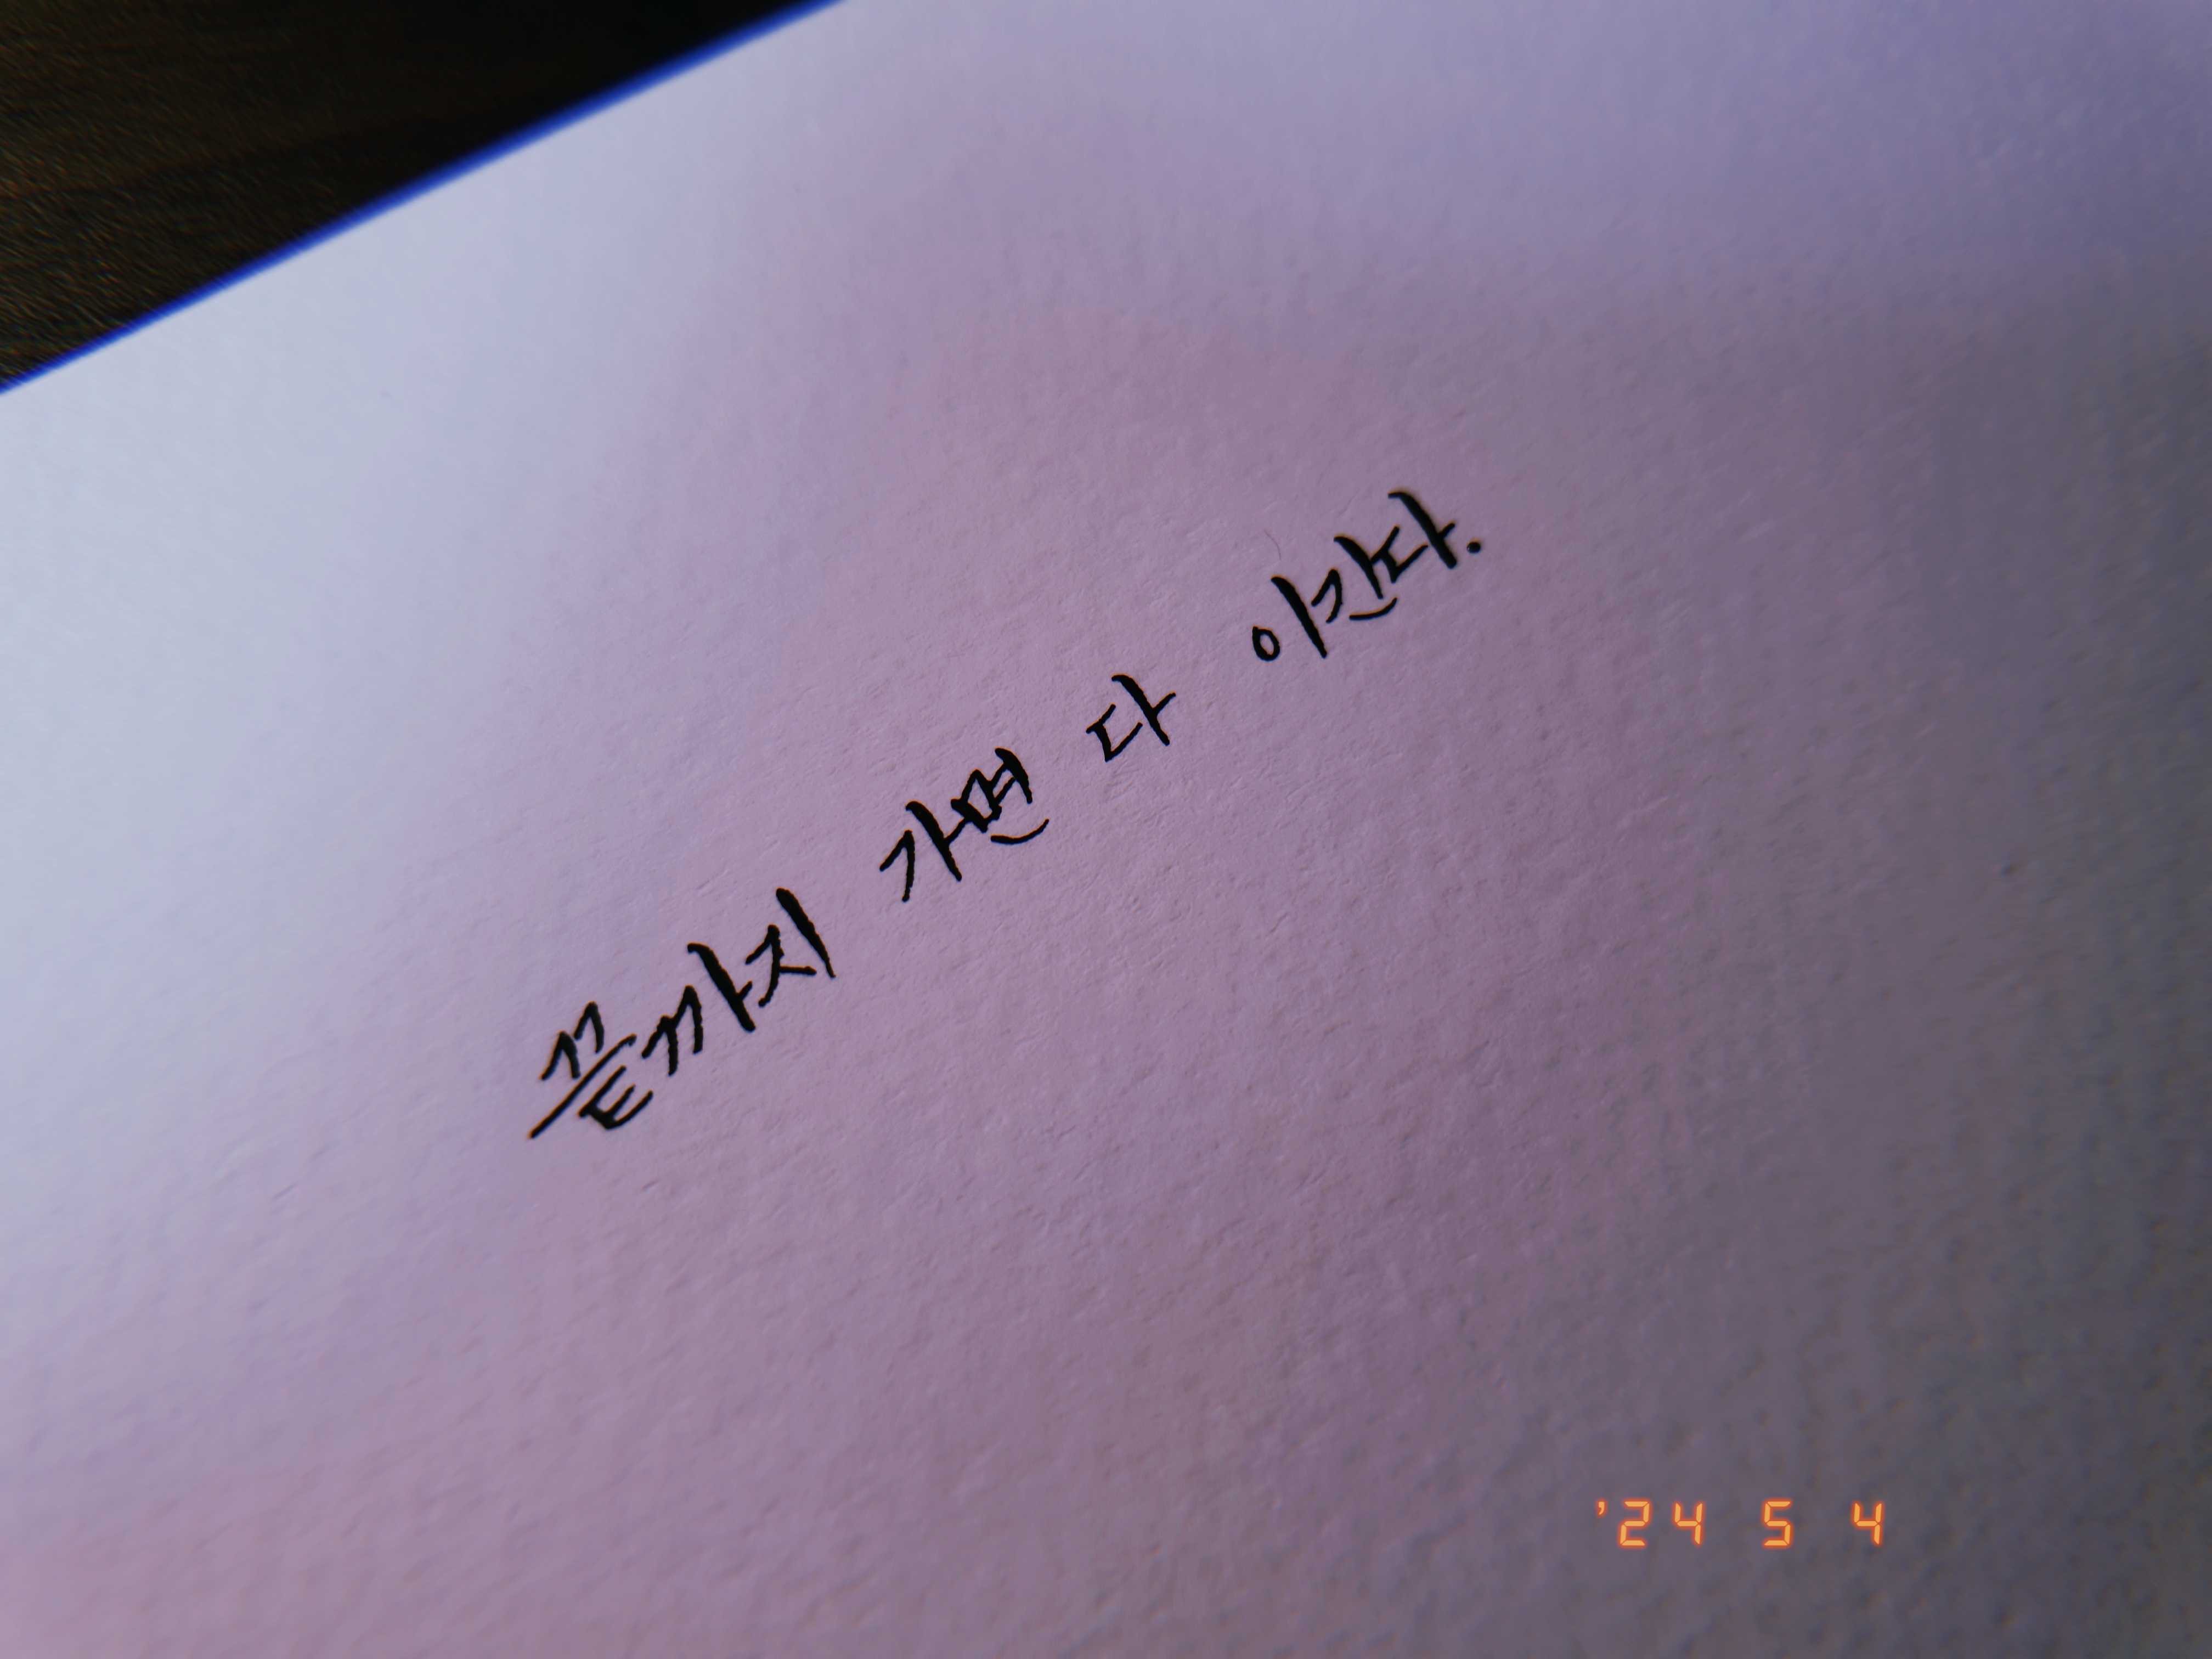 끝까지 가면 다 이긴다.
'24 5 4